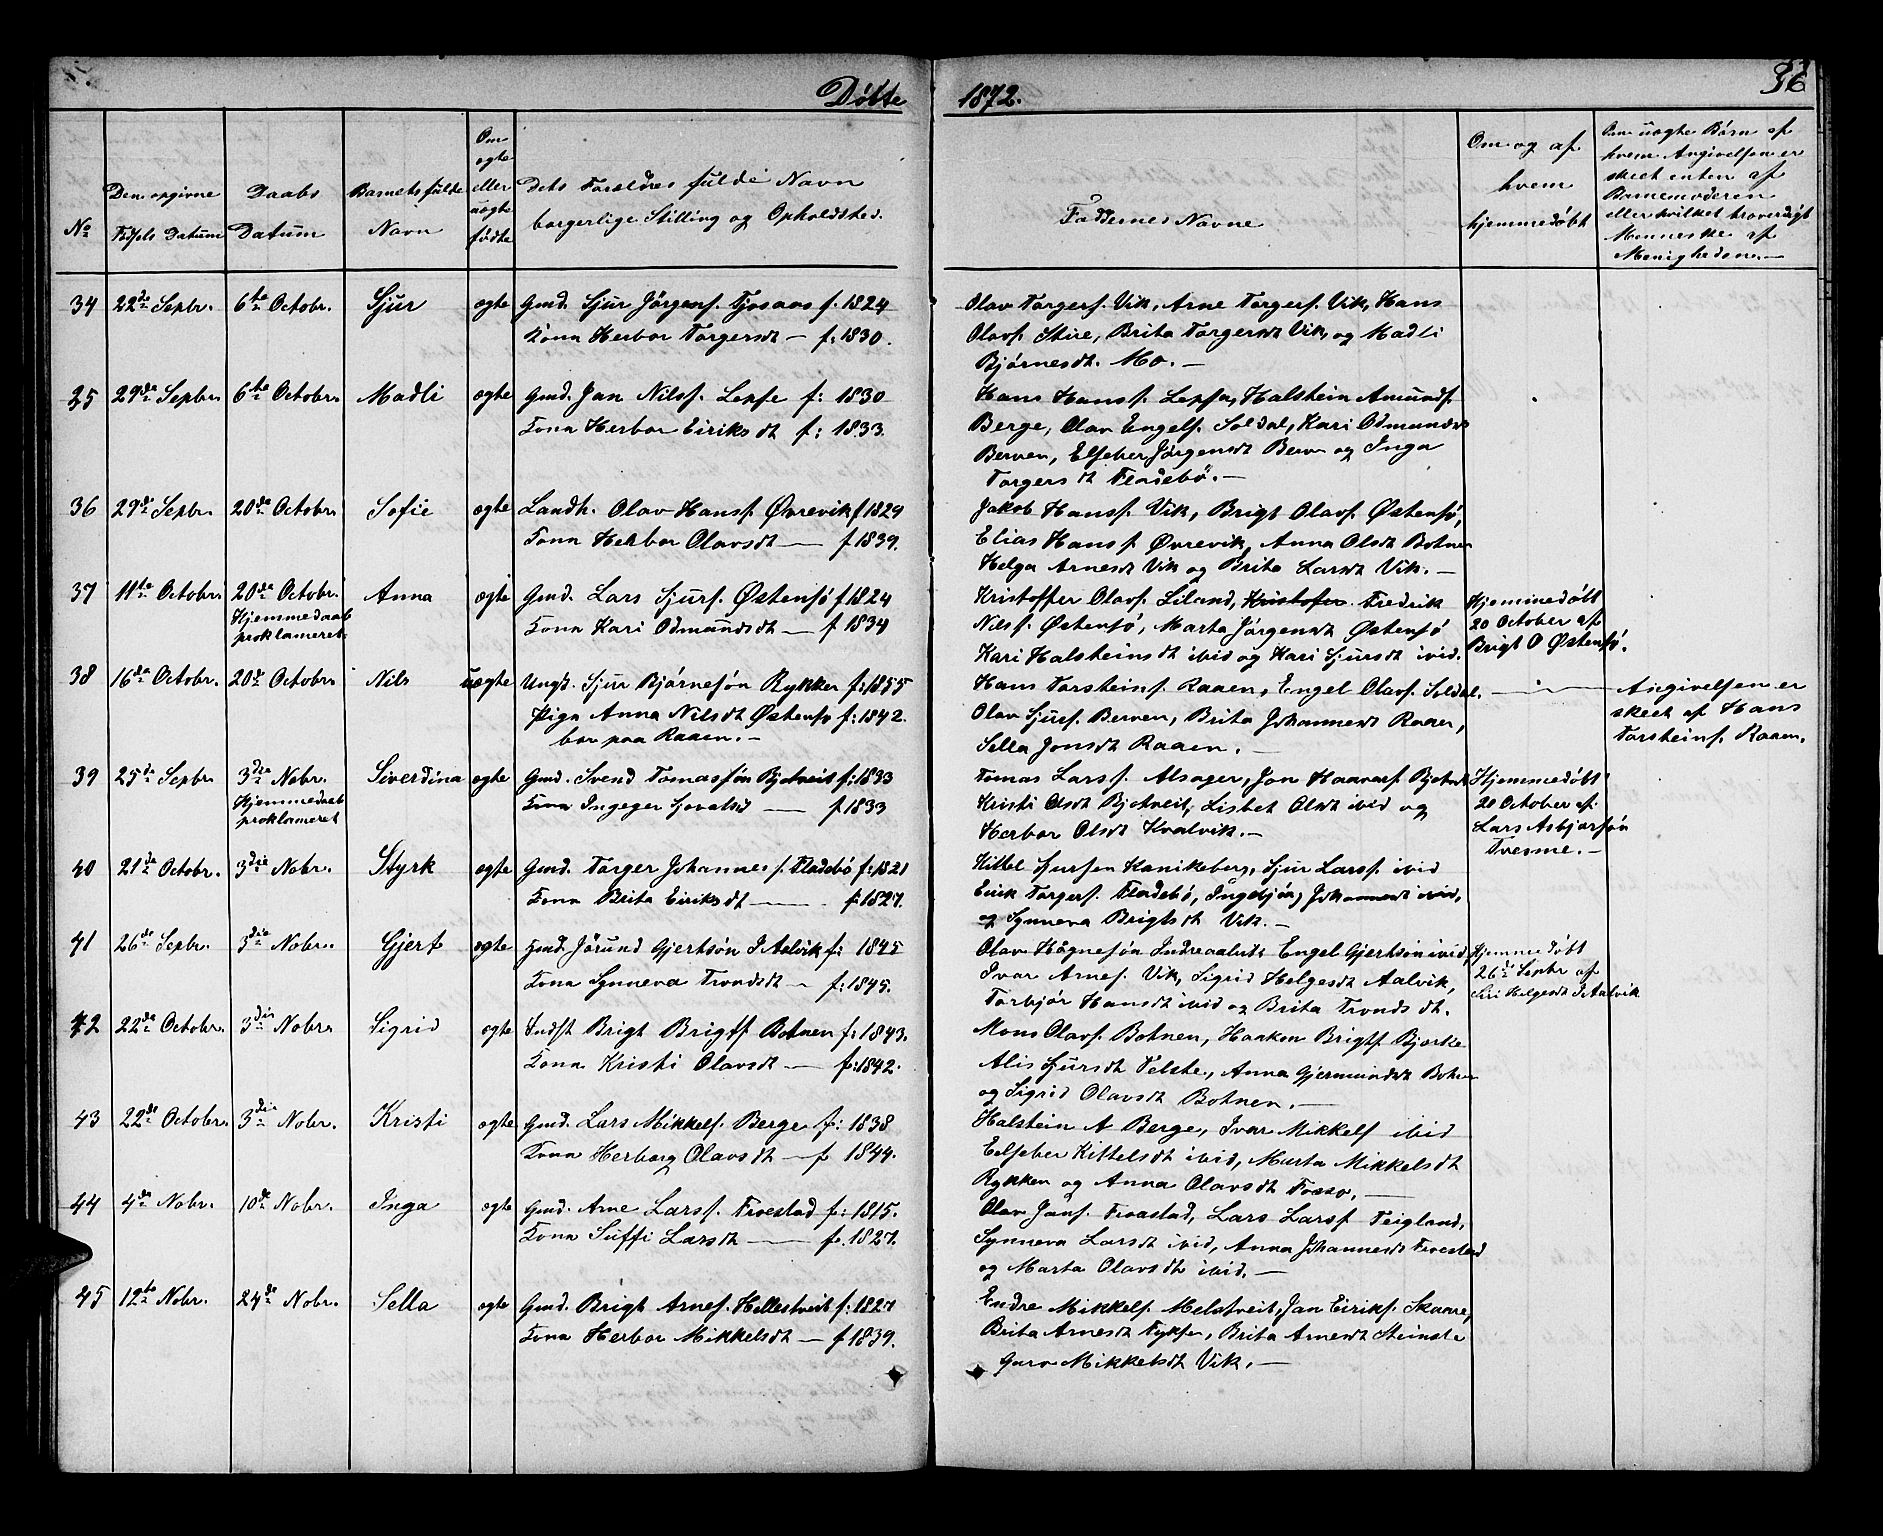 Döbte 1872. 36
No
Den opgivne Födsels Datum
Daabs Datum
Barnets fulde Navn
Om ægte eller uægte födte
Dets Foreldres fulde Navn
borgerlige Stilling og Opholdsted.
Faddernes Navne
Om og af hvem hjemmedöbt
Om uægte Börn af
hvem Angivelsen er
skeet enten af
Barnemoderen
eller hvilket troverdigt
Menneske af
Menigheden.—
34 22de Sepbr. 6te Octobr. Sjur ægte Gmd. Sjur Jörgens. Tjosaas f. 1824
Kona Herbor Torgersdt — f: 1830.
Olav Torgers. Vik, Arne Torgers. Vik, Hans
Olavs. Stire, Brita Torgersdt Vik, og Madli
Bjórnesdt. Mo.—
25 29de Sepbr. 6te Octobr. Madli ægte Gmd. Jan Nilss. Lepse f: 1830
Kona Herbor Eiriksdt f: 1833.
Hans Hanss. Lepsa, Halstein Amunds.
Berge, Olav Engels. Soldal, Kari Odmundsdt
Berven, Elseber Jörgensdt Berve og Inga
Torgersdt Fladebö.—
36 29de Sepbr. 20de Octobr. Sofie ægte Landh. Olav Hanss. Øvrevik f 1829
Kona Herbor Olavsdt — f 1839.
Jakob Hanss. Vik, Brigt Olavs. Østensö,
Elias Hanss. Øvrevik, Anna Olsdt Botnen
Helga Arnesdt Vik og Brita Larsdt Vik.—
37 11te Octobr. 20de Octobr. Anna ægte Gmd. Lars Sjurs. Østensö f 1824
Hjemmedaab
proklameret.
Kona Kari Odmundsdt — f 1834
Kristoffer Olavs. Liland, Kristofer Fredrik
Nilss. Østensö, Marta Jörgensdt Østensö
Kari Halsteinsdt ibid og Kari Sjursdt ibid.
Hjemmedöbt
20 October af
Brigt O Østensö.
38 16de Octobr. 20de Octobr. Nils uægte Ungk. Sjur Björnesön Rykken f: 1855
Piga Anna Nilsdt Østensö f: 1842.
bor paa Raaen.—
Hans Torsteins. Raaen, Engel Olavs. Soldal.
Olav Sjurs. Berven, Brita Johannesdt Raaen,
Sella Jonsdt Raaen.—
Angivelsen er
skeet af Hans
Torsteins. Raaen.
39 25de Sepbr. 3die Nobr. Siverdina ægte Gmd. Svend Tomassön Bjotveit f: 1833
Hjemmedaab
proklameret
Kona Ingeger Sjovatsdt — f 1833
Tomas Larss. Alsager, Jon Haavars. Bjotveit
Kristi Olsdt Bjotveit, Lisbet Olsdt ibid og
Herbor Olsdt Kvalvik.—
Hjemmedöbt
20 October af
Lars Asbjorsön
40 21de Octobr. 3die Nobr. Styrk ægte Gmd. Torger Johanness. Fladebö f: 1821
Kona Brita Eiriksdt — f: 1827.
Kittel Sjursen Kanikeberg, Sjur Larss. ibid
Eirik Torgers. Fladebö, Ingebjör Johannesdt ibid,
og Synneva Brigtsdt Vik.—
41 26de Sepbr. 3die Nobr. Gjert ægte Gmd. Jörund Gjertsön I Aalvik f: 1845
Kona Synneva Trondsdt — f: 1845.
Olav Hågnesön Indreaalvik Engel Gjertsön ibid,
Ivar Arnes. Vik, Sigrid Helgesdt Aalvik,
Torbjör Hansdt ibid og Brita Tronds dt.
Hjemmedöbt
26de Sepbr af
Siri Helgesdt I Aalvik
42 22de Octobr. 3die Nobr. Sigrid ægte Indst Brigt Brigts. Botnen f: 1843.
Kona Kristi Olavsdt — f: 1842.
Mons Olavs. Botnen, Haakon Brigts. Bjorke
Alis Sjursdt Velste, Anna Gjermundsdt Botnen
og Sigrid Olavsdt Botnen.—
43 22de Octobr. 3die Nobr. Kristi ægte Gmd. Lars Mikkels. Berge f: 1838
Kona Herborg Olavsdt — f 1844.
Halstein A Berge, Ivar Mikkels ibid
Eelseber Kittelsdt ibid, Marta Mikkelsdt
Rykken og Anna Olavsdt
44 4de Nobr. 10de Nobr. Inga ægte Gmd. Arne Larss. Froestad f: 1815.
Kona Suffi Larsdt — f. 1827.
Olav Jans. Froestad, Lars Larss Teigland,
Synneva Larsdt ibid, Anna Johannesdt Froestad
og Marta Olavsdt ibid.—
45 12te Nobr. 24de Nobr. Sella ægte Gmd. Brigt Arnes. Hellestveit f: 1827
Kona Herbor Mikkelsdt — f 1839.
Endre Mikkels. Melstveit, Jan Eiriks. Skaare,
Brita Arnesdt Fykse, Brita Arnesdt Steinstø
Guro Mikkelsdt Vik.—